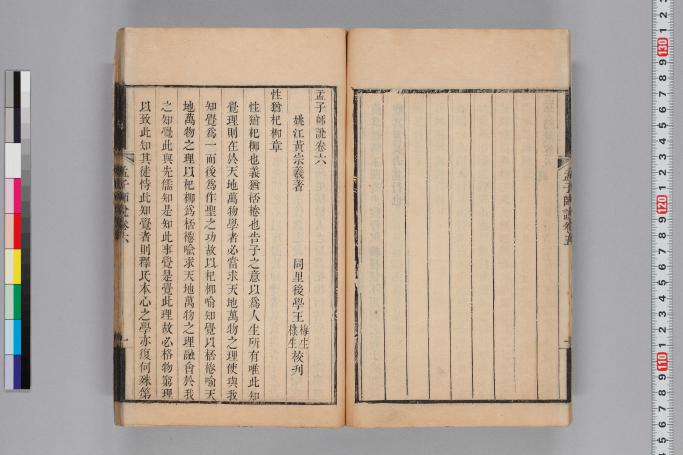 孟子師說卷六
姚江黃宗羲著 同里後學王梓生𣗳生校刊
性猶杞柳章
性猶杞柳也義猶桮棬也告子之意以爲人生所有唯此知
覺理則在於天地萬物學者必當求天地萬物之理使與我
知覺爲一而後爲作聖之功故以杞柳喻知覺以桮棬喻天
地萬物之理以杞柳爲桮棬喩求天地萬物之理融會於我
之知覺此與先儒知是知此事覺是覺此理故必格物窮理
以致此知其徒恃此知覺者則釋氏本心之學亦復何殊第
孟子師說卷六
一
孟子師說卷五